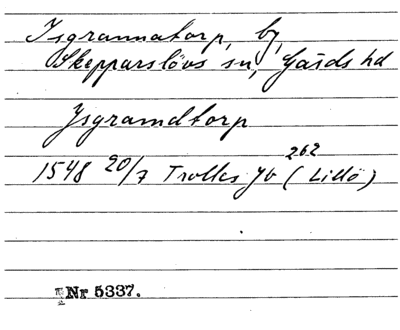 Isgrannatorp, by,
Skepparslövs sn, Gärds hd
Ysgramdtorp
262
1548 20/7 Trolles Jb (Lillö)
Nr 5337.